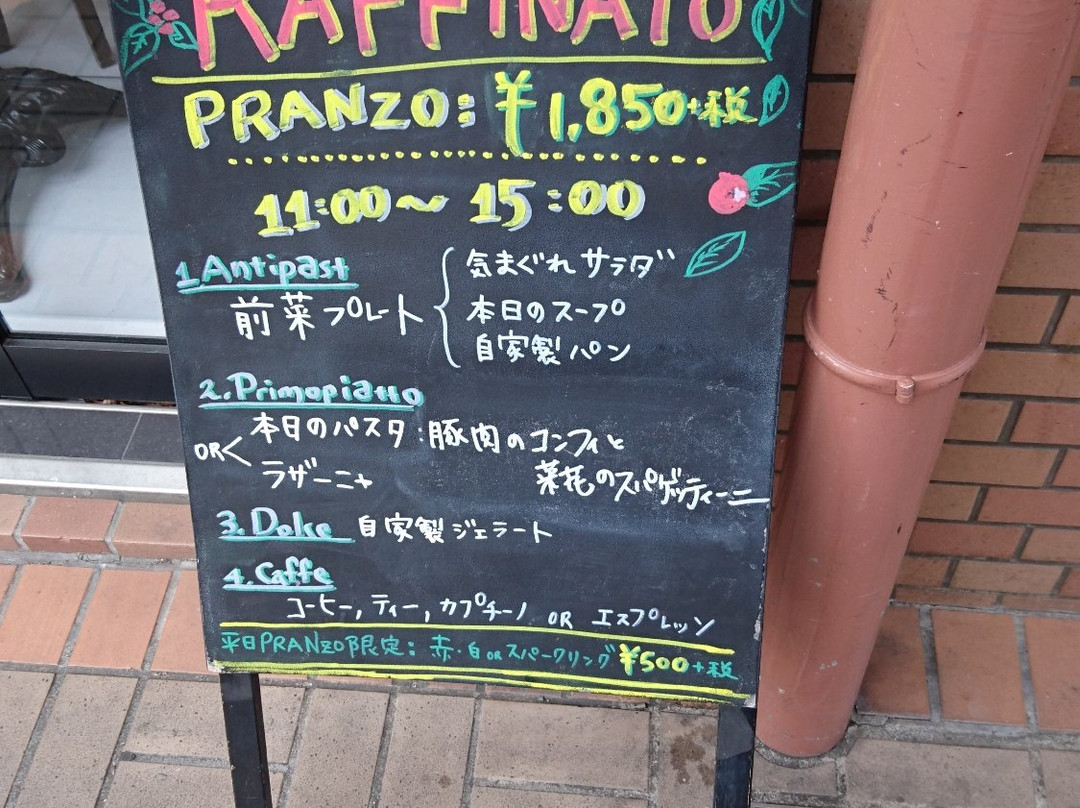 RAFFINATO
PRANZO: ¥1,850+税
11:00〜15:00
1. Antipast
前菜プレート
気まぐれサラダ
本日のスープ
自家製パン
2. Primopiatto
OR
本日のパスタ:豚肉のコンフィと
菜花のスパゲッティーニ
ラザーニャ
3. Dolce 自家製ジェラート
4. Caffe
コーヒー, ティー, カプチーノ OR エスプレッソ
平日PRANZO限定: 赤・白 OR スパークリング ¥500+税